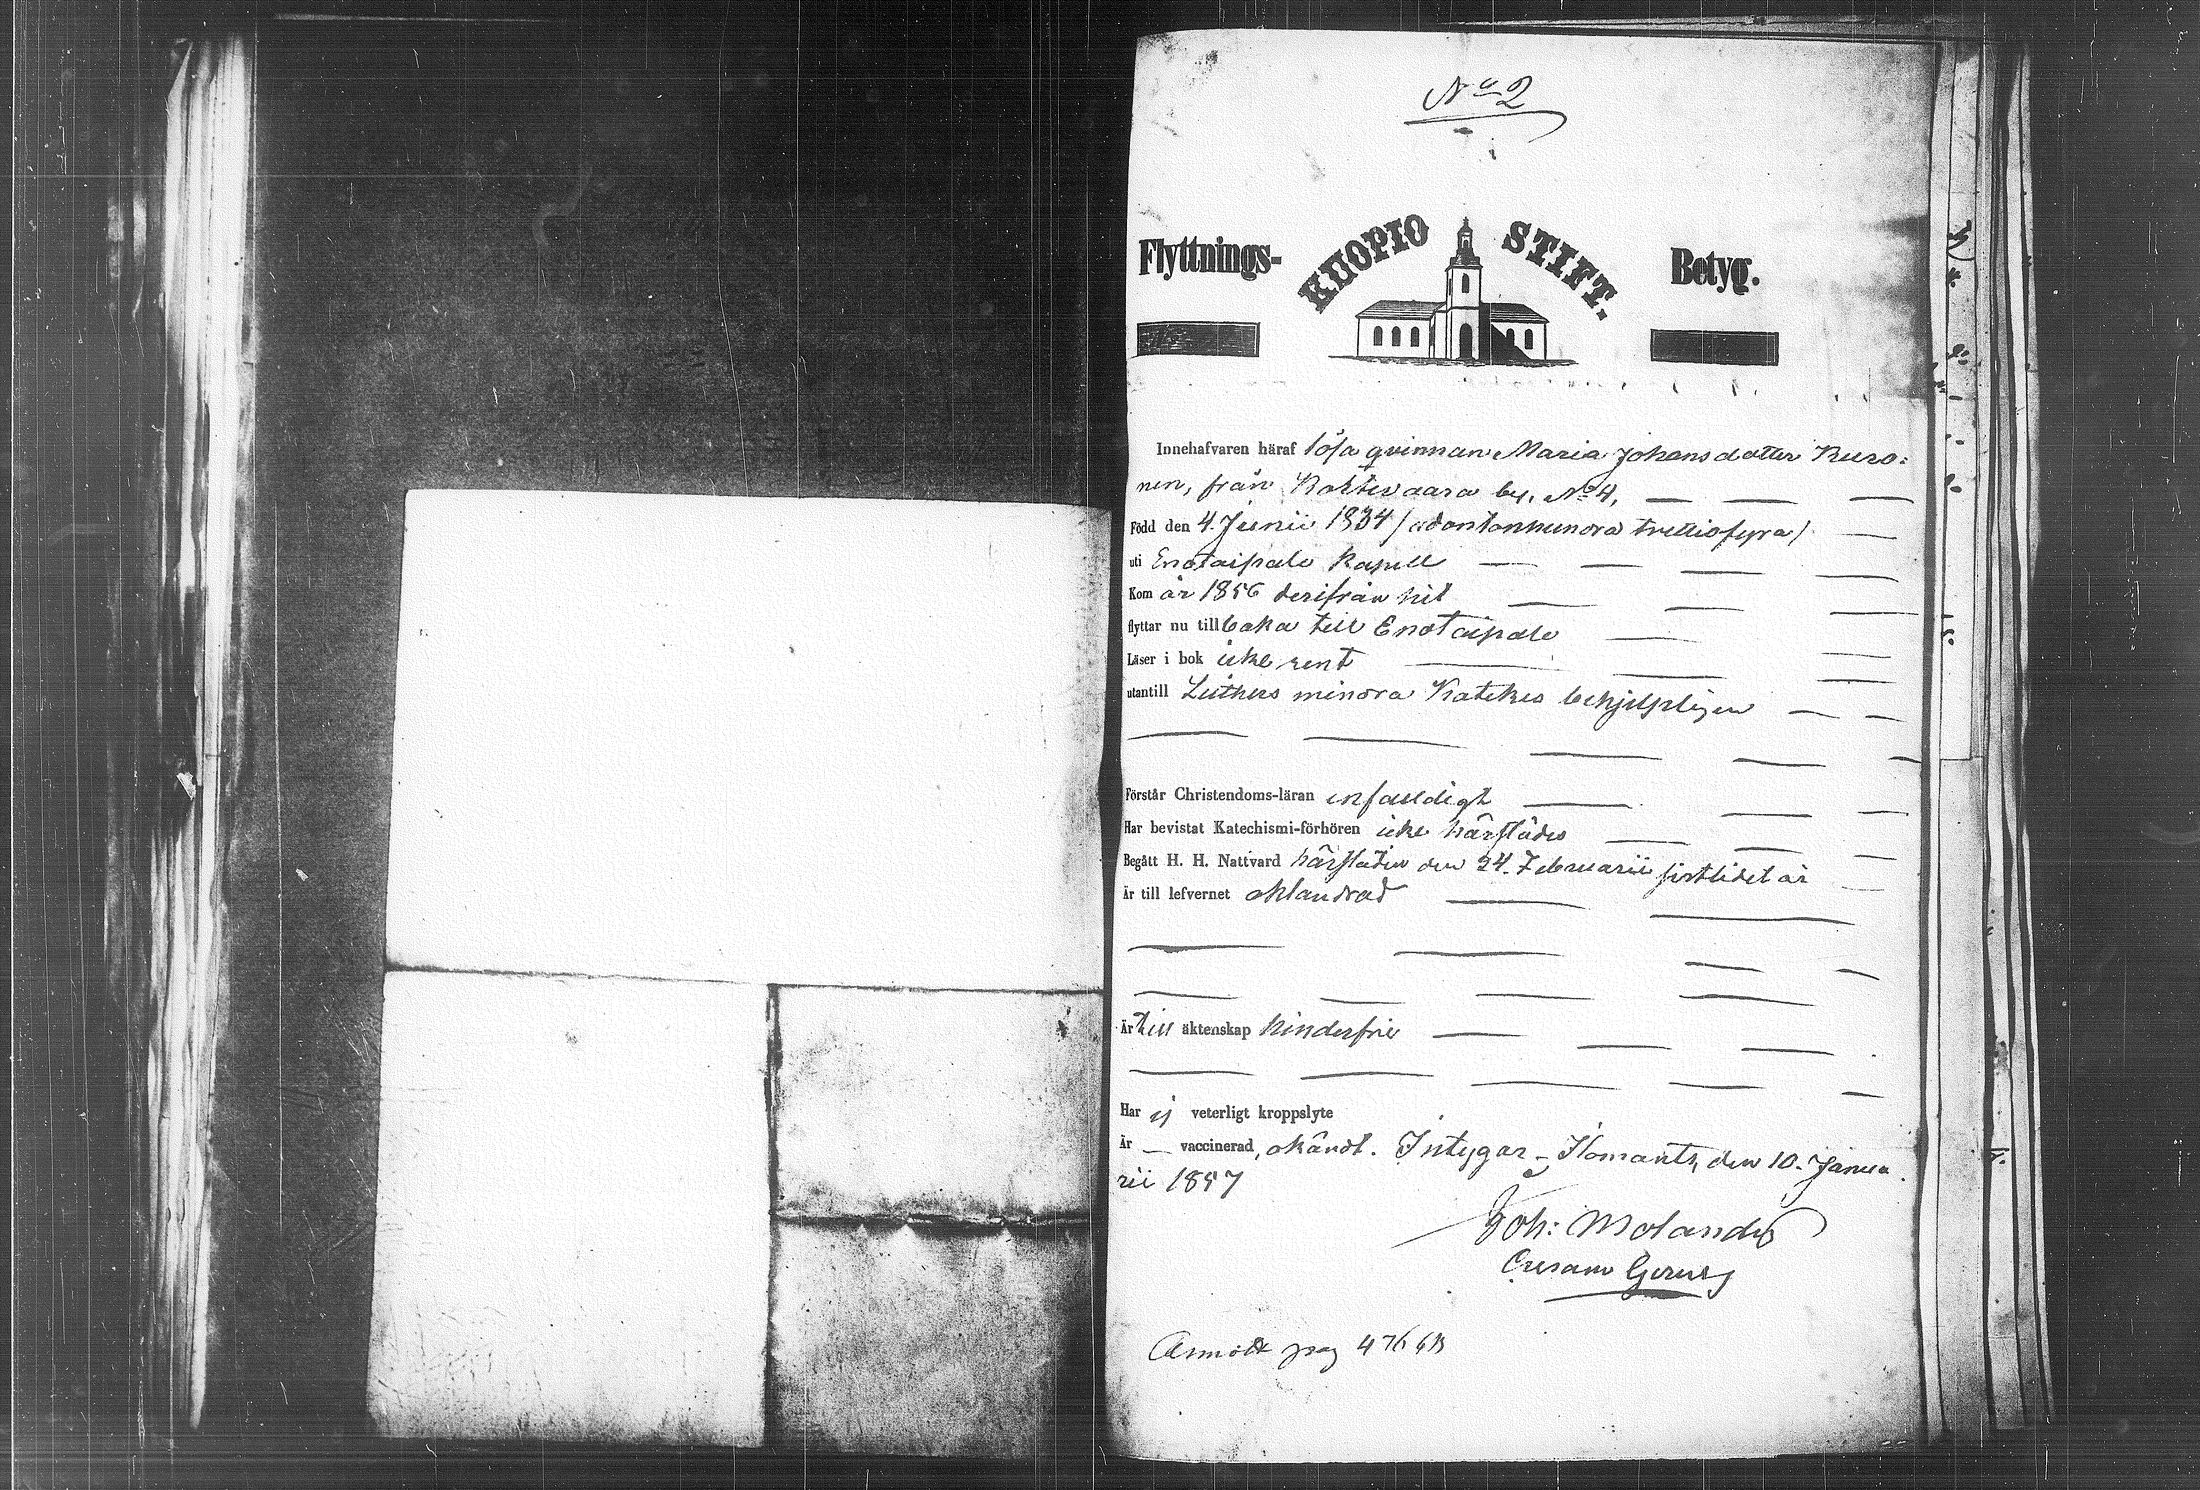 No 2
Flyttnings- KUOPIO STIFT. Betyg.
Innehafvaren häraf lösa qvinnan Maria Johansdotter Kuro-
nen, från Koktevaara by, No 4,
Född den 4. Junii 1834 / adertonhundra trettiofyra /
uti Enotaipale Kapell
Kom år 1856 derifrån hit
flyttar nu tillbaka till Enotaipale
Läser i bok icke rent
utantill Luthers mindra Kateches behjelpligen
Förstår Christendoms-läran enfaldigt
Har bevistat Katechismi-förhören icke härstädes
Begått H. H. Nattvard härstädes den 24. Februarii sistlidet år
Är till lefvernet oklandrad
Är till äktenskap hinderfri
Har ej veterligt kroppslyte
Är — vaccinerad, okändt. Intygar - Ilomants, den 10. Janua
rii 1857
Joh: Molander
Anmält pag 476